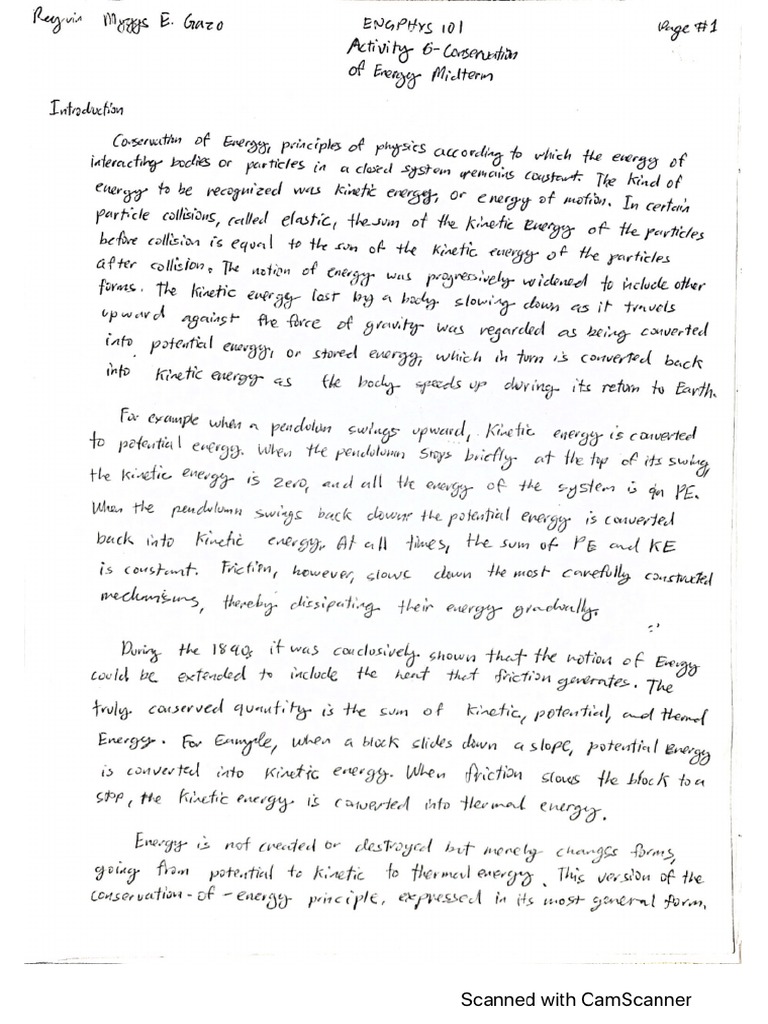 Reyvin Myggs E. Gazo ENGPHYS 101 Page #1
Activity 6-Conservation
of Energy Midterm
Introduction
Conservation of Energy, principles of physics according to which the energy of
interacting bodies or particles in a closed system remains constant. The kind of
energy to be recognized was kinetic energy, or energy of motion. In certain
particle collisions, called elastic, the sum of the kinetic Energy of the particles
before collision is equal to the sum of the kinetic energy of the particles
after collision. The notion of energy was progressively widened to include other
forms. The kinetic energy lost by a body slowing down as it travels
upward against the force of gravity was regarded as being converted
into potential energy, or stored energy, which in turn is converted back
into kinetic energy as the body speeds up during its return to Earth.
For example when a pendulum swings upward, kinetic energy is converted
to potential energy. When the pendulumn stops briefly at the top of its swing,
the kinetic energy is zero, and all the energy of the system is in PE.
When the pendulumn swings back down the potential energy is converted
back into kinetic energy. At all times, the sum of PE and KE
is constant. Friction, however, slows down the most carefully constructed
mechanisms, thereby dissipating their energy gradually.
During the 1840s it was conclusively shown that the notion of Energy
could be extended to include the heat that friction generates. The
truly conserved quantity is the sum of kinetic, potential, and thermal
Energy. For Example, when a block slides down a slope, potential Energy
is converted into kinetic energy. When friction slows the block to a
stop, the kinetic energy is converted into thermal energy.
Energy is not created or destroyed but merely changes forms,
going from potential to kinetic to thermal energy. This version of the
conservation-of-energy principle, expressed in its most general form,
Scanned with CamScanner